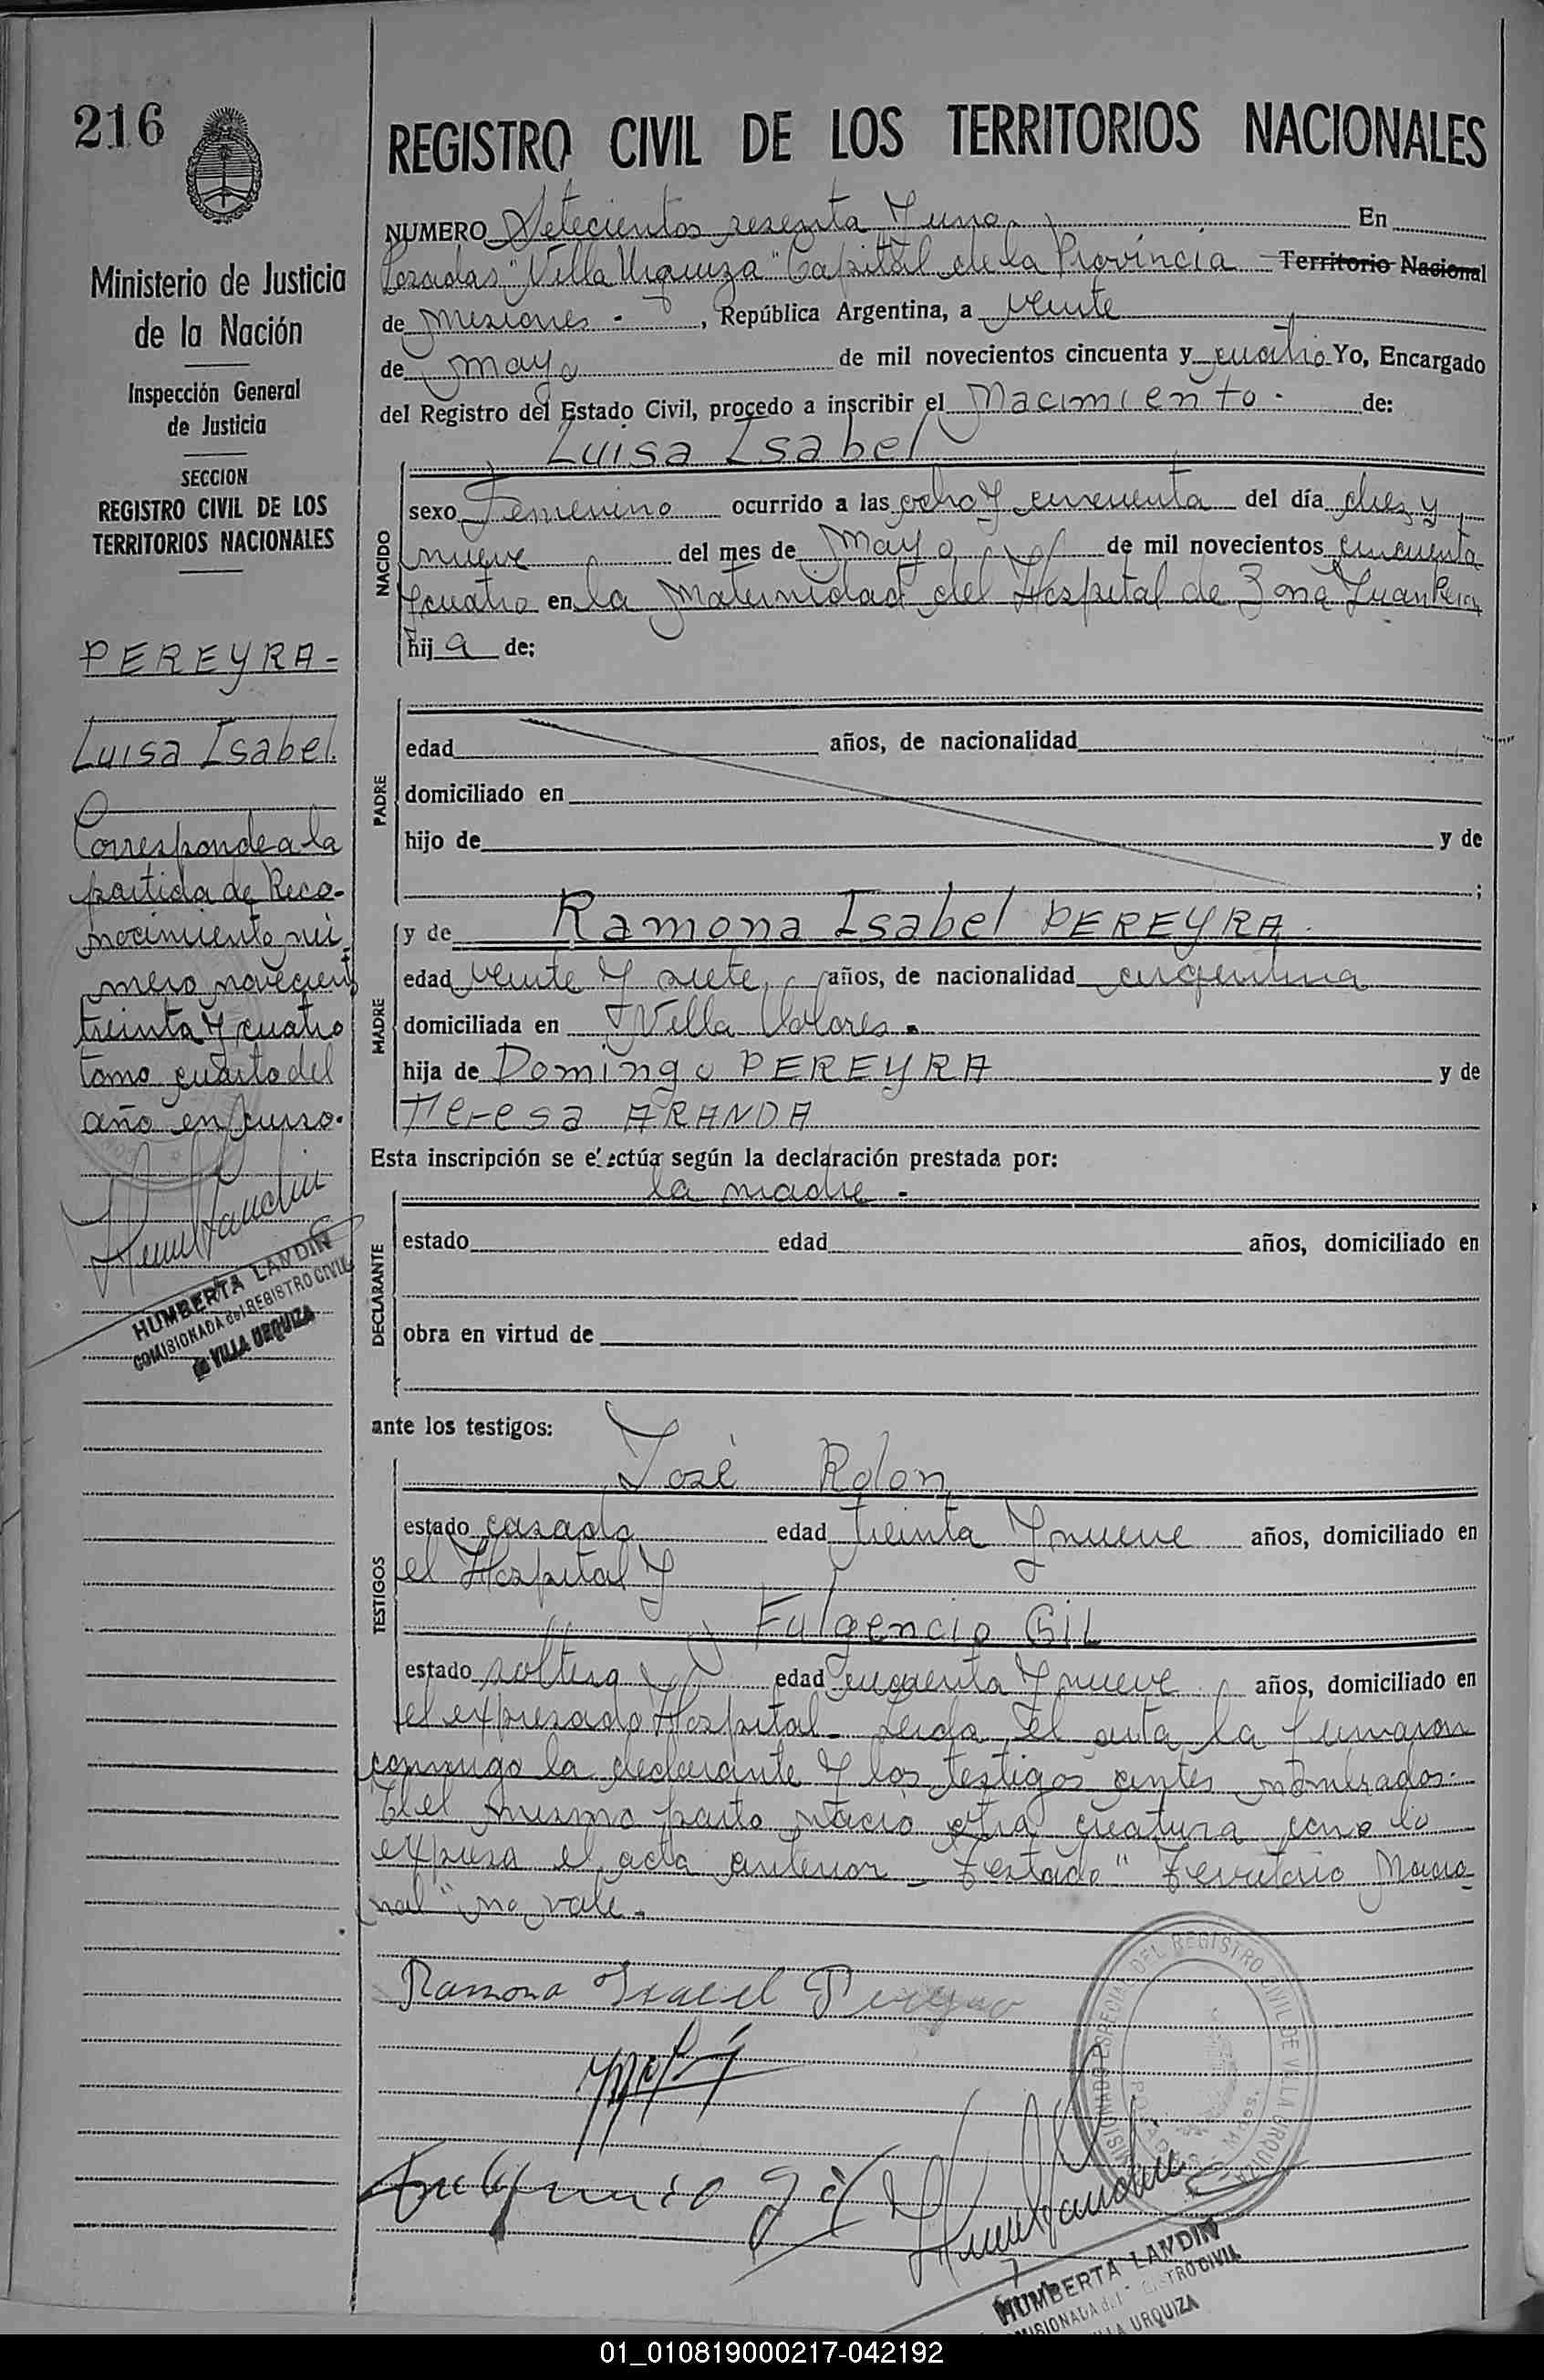 216
REGISTRO CIVIL DE LOS TERRITORIOS NACIONALES
Ministerio de Justicia
de la Nación
Inspección General
de Justicia
SECCION
REGISTRO CIVIL DE LOS
TERRITORIOS NACIONALES
PEREYRA-
Luisa Isabel.
Corresponde a la
partida de Reco-
nocimiento nú
mero novecient
treinta y cuatro
tomo cuarto del
año en curso.
HUMBERTA LANDIN
COMISIONADA del REGISTRO CIVIL
de VILLA URQUIZA
NUMERO Setecientos sesenta y uno En
Posadas "Villa Urquiza" Capital de la Provincia Territorio Nacional
de Misiones - , República Argentina, a veinte
de mayo de mil novecientos cincuenta y cuatro Yo, Encargado
del Registro del Estado Civil, procedo a inscribir el Nacimiento - de:
Luisa Isabel
NACIDO
sexo Femenino ocurrido a las ocho y cincuenta del día diez y
nueve del mes de mayo de mil novecientos cincuenta
y cuatro en la Maternidad del Hospital de Zona Juan Perón
hija de:
PADRE
edad años, de nacionalidad
domiciliado en
hijo de y de
;
MADRE
y de Ramona Isabel PEREYRA.
edad veinte y siete años, de nacionalidad argentina
domiciliada en Villa Dolores.
hija de Domingo PEREYRA y de
Teresa ARANDA
Esta inscripción se efectúa según la declaración prestada por:
la madre -
DECLARANTE
estado edad años, domiciliado en
obra en virtud de
ante los testigos:
José Rolon
TESTIGOS
estado casado edad treinta y nueve años, domiciliado en
el Hospital y
Fulgencio GIL
estado soltero edad cincuenta y nueve años, domiciliado en
el expresado Hospital - Leida el acta la firmaron
conmigo la declarante y los testigos antes nombrados.
del mismo parto nació otra criatura como lo
expresa el acta anterior - Testado "Territorio Nacio-
nal" no vale.
Ramona Isabel Pereyra
Fulgencio Gil
COMISIONADO ESPECIAL DEL REGISTRO CIVIL DE VILLA URQUIZA
POSADAS - Mnes.
HUMBERTA LANDIN
COMISIONADA del REGISTRO CIVIL
VILLA URQUIZA
01_010819000217-042192